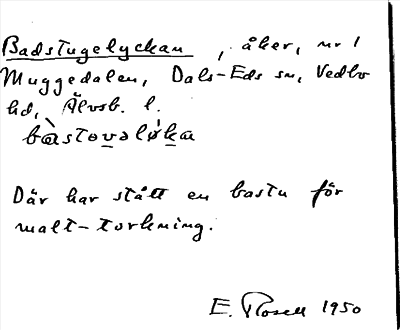 Badstugelyckan, åker, nr 1
Muggedalen, Dals-Eds sn, Vedbo
hd, Älvsb. l.
bàstovəlỳka
Där har stått en bastu för
malt-torkning.
E. Rosell 1950